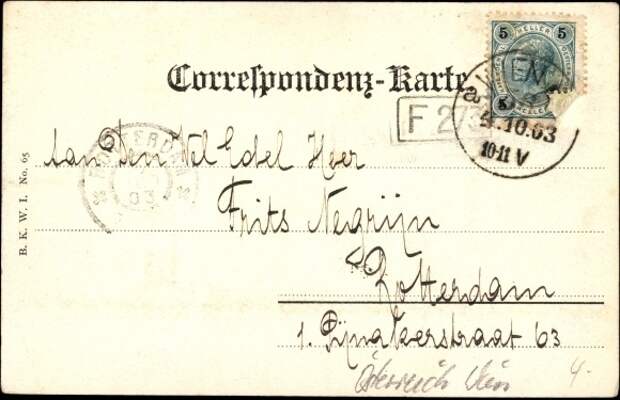 5 5
HELLER
WIEN
5
Correspondenz-Karte
F 273
4.10.03
10-11 V
ROTTERDAM
03
Aan Den Wel Edel Heer
Frits Negrijn
Rotterdam
1. Pijnakerstraat 63
B. K. W. I. No. 65
Österreich Wien
4.-